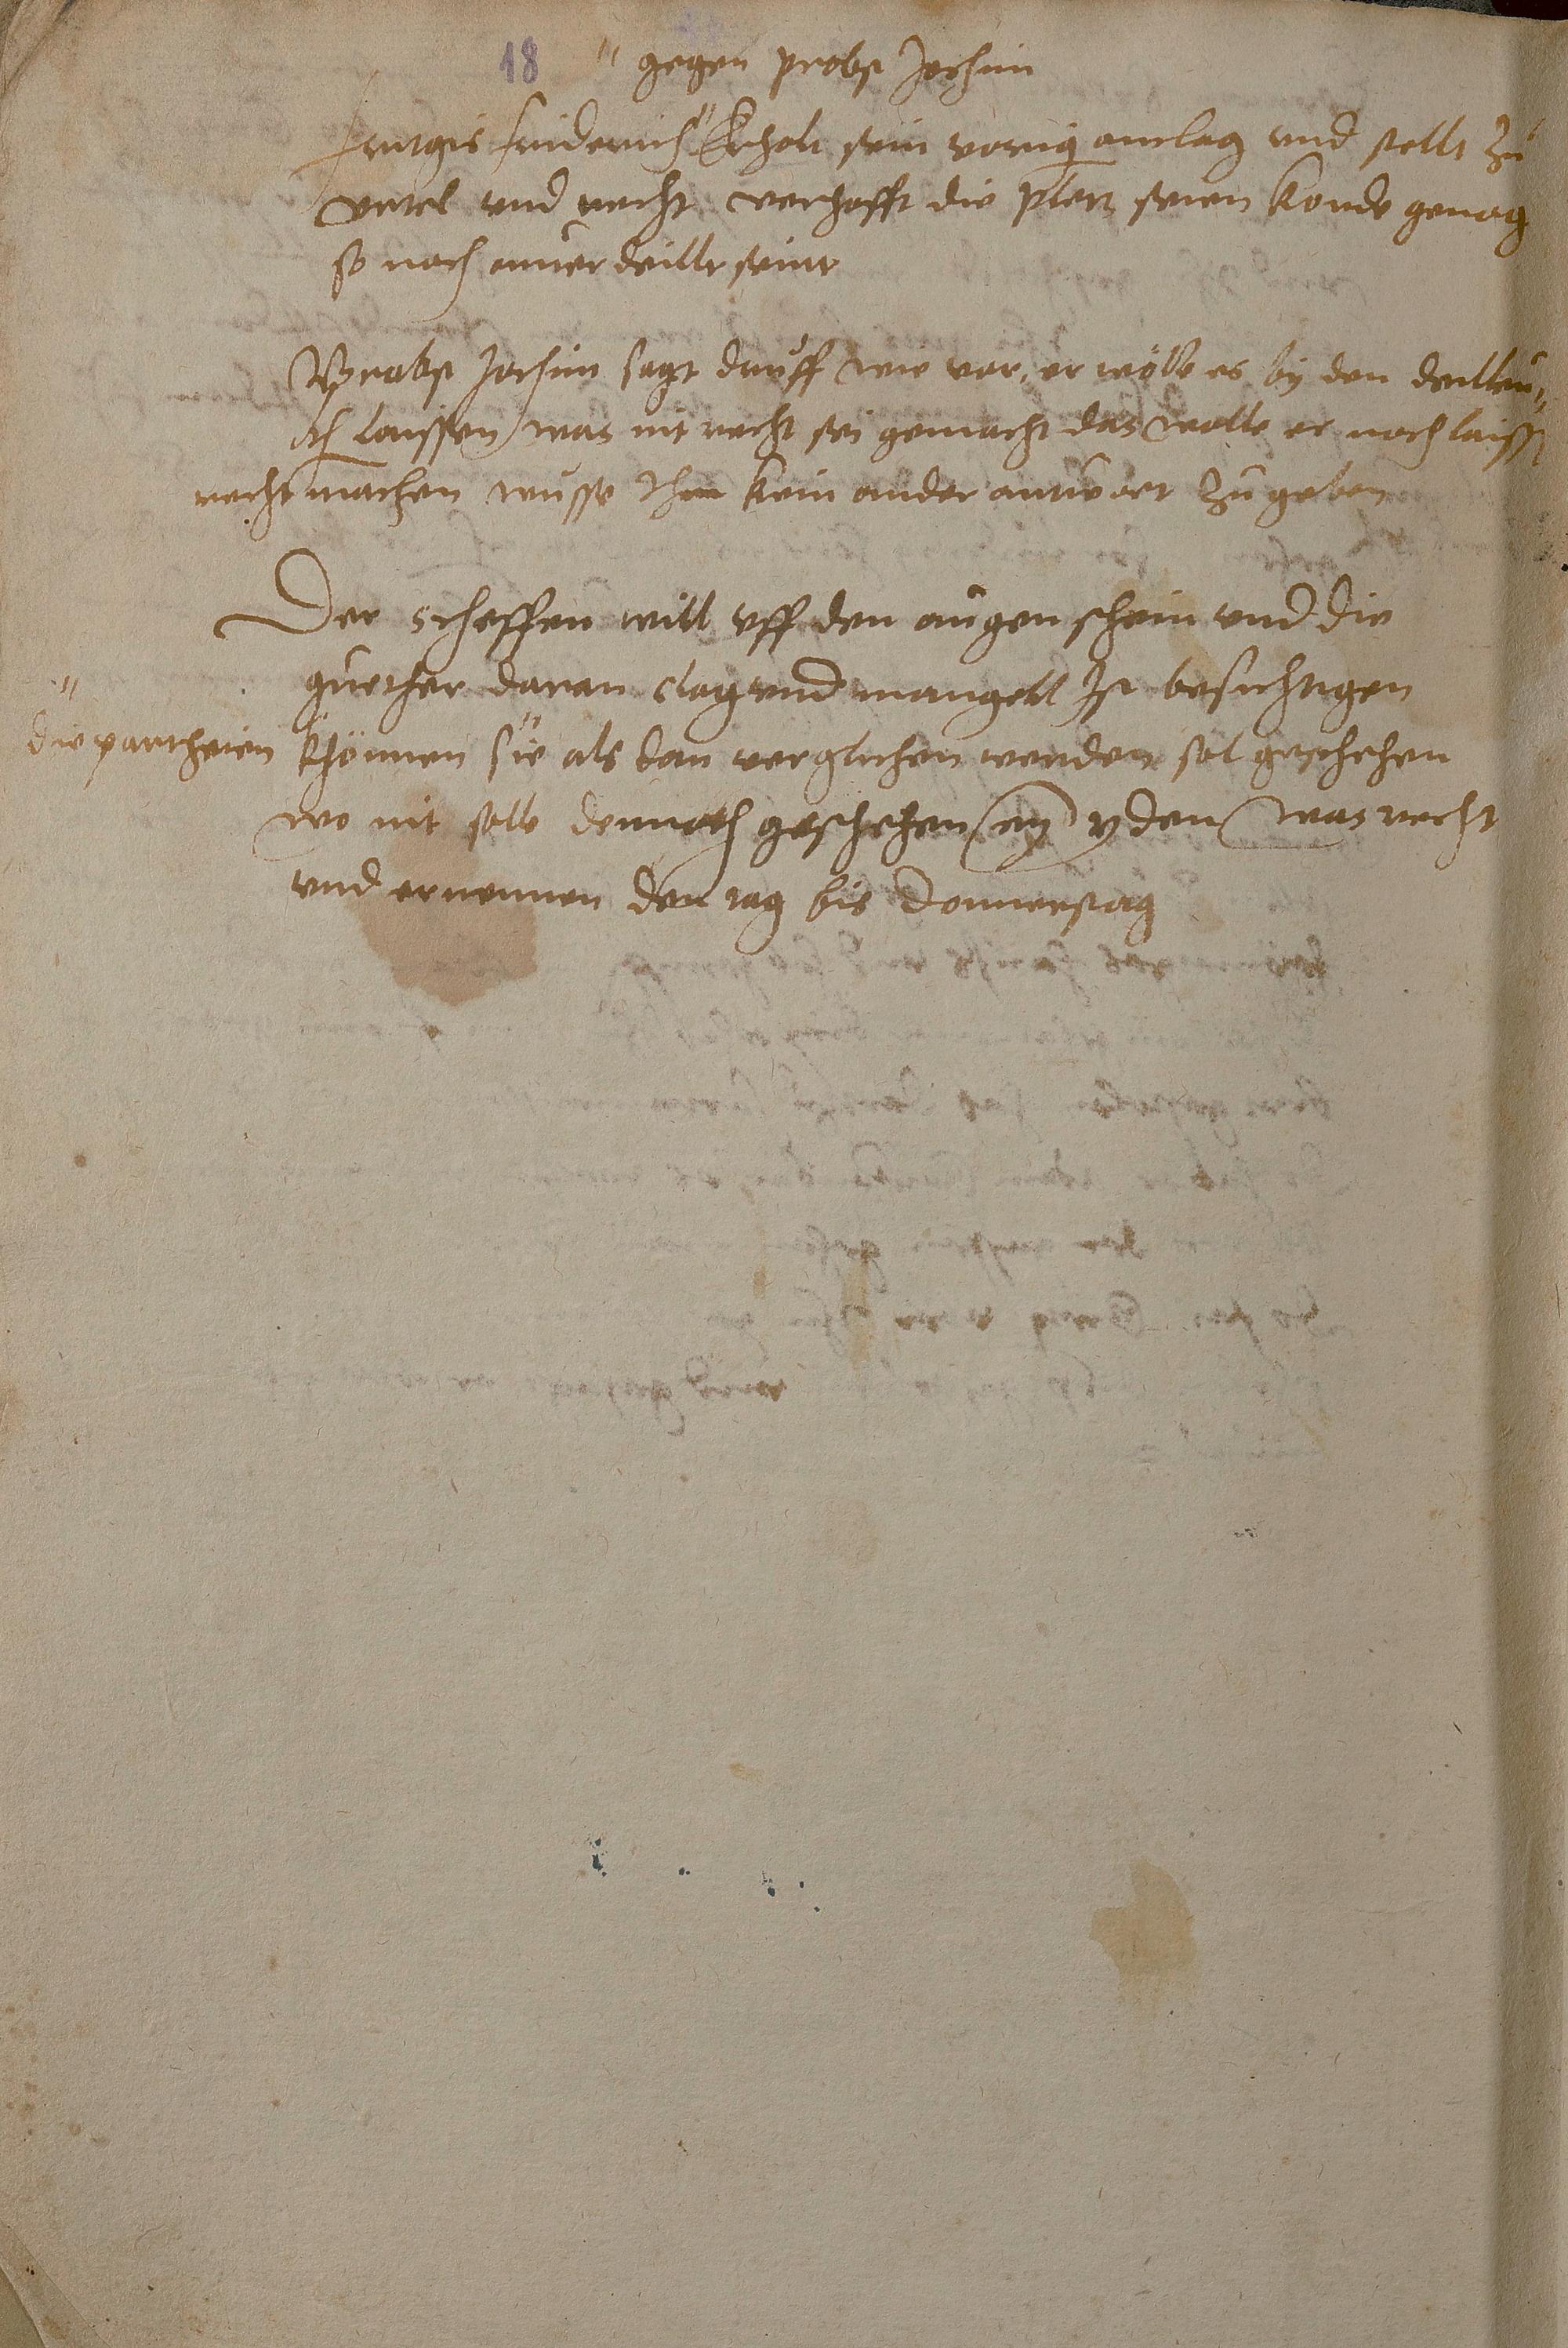 18 " gegen probst Jochim
Friderich " Erholt sein vorig anclag vnd stellt zu
vrtel vnd recht verhofft die pletz seien konde genog
so noch onuerdeillt seint
Probst Jochim sagt druff wie vor, er wölle es by den deilleu„
laissen was nit recht sei gemacht das wolle er noch laissen
recht machen wusse Ihm kein ander antwort zu geben
Der scheffen will vff den augenschein vnd die
guether daran clag vnd mangell Ist besichtigen
" die partheien khönnen " sie als dan verglichen werden sol geschehen
wo nit solle dennoch geschehen eim yden was recht
vnd ernennen den tag bis Donnerstag